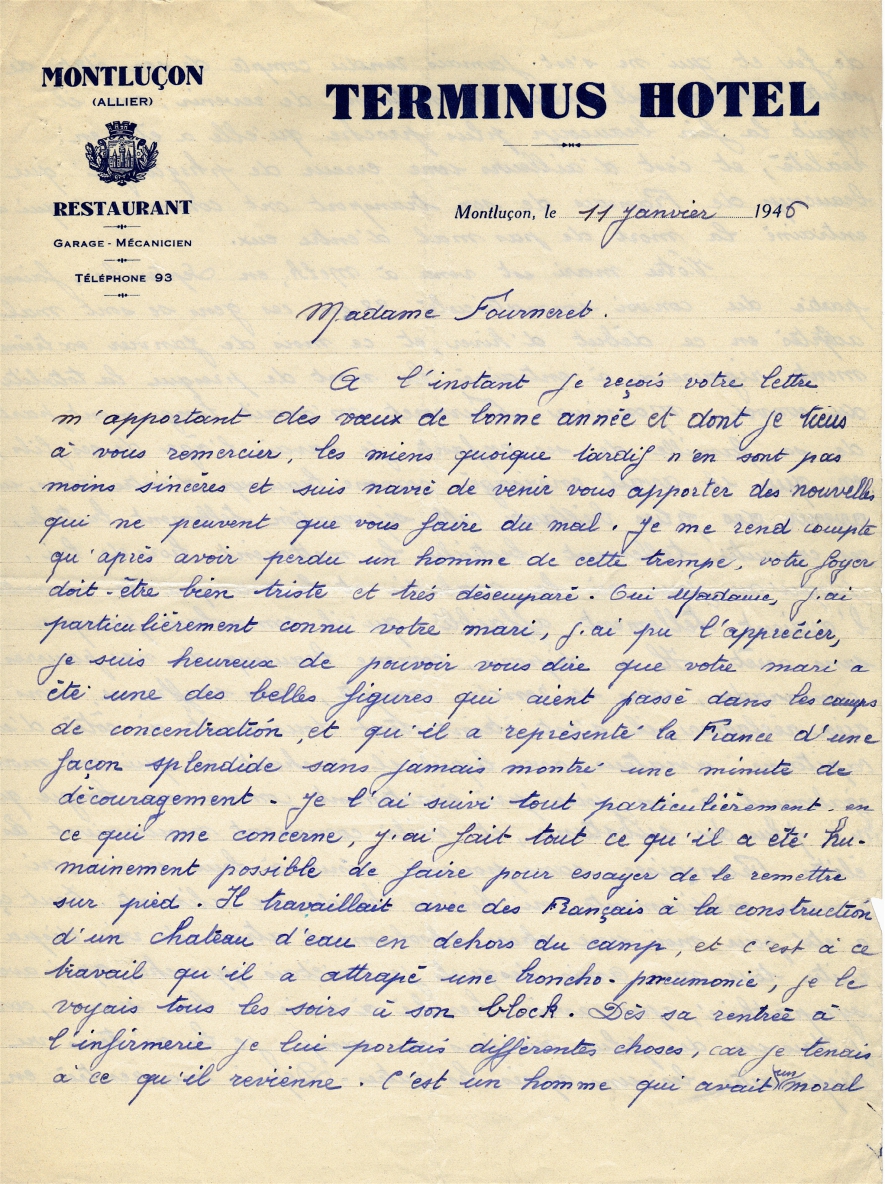 MONTLUÇON
(ALLIER)
RESTAURANT
GARAGE - MÉCANICIEN
TÉLÉPHONE 93
TERMINUS HOTEL
Montluçon, le 11 Janvier 1946
Madame Fourneret.
A l'instant je reçois votre lettre
m'apportant des vœux de bonne année et dont je tiens
à vous remercier, les miens quoique tardif n'en sont pas
moins sincères et suis navré de venir vous apporter des nouvelles
qui ne peuvent que vous faire du mal. Je me rend compte
qu'après avoir perdu un homme de cette trempe, votre foyer
doit-être bien triste et trés désemparé. Oui Madame, j'ai
particulièrement connu votre mari, j'ai pu l'apprécier,
je suis heureux de pouvoir vous dire que votre mari a
été une des belles figures qui aient passé dans les camps
de concentration, et qu'il a représenté la France d'une
façon splendide sans jamais montré une minute de
découragement. Je l'ai suivi tout particulièrement. en
ce qui me concerne, j'ai fait tout ce qu'il a été hu-
mainement possible de faire pour essayer de le remettre
sur pied. Il travaillait avec des Français à la construction
d'un chateau d'eau en dehors du camp, et c'est à ce
travail qu'il a attrapé une broncho-pneumonie, je le
voyais tous les soirs à son block. Dès sa rentrée à
l'infirmerie je lui portais différentes choses, car je tenais
à ce qu'il revienne. C'est un homme qui avait un moral